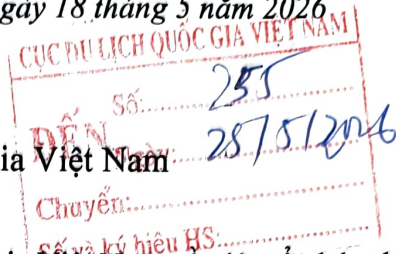 gày 18 tháng 5 năm 2026
CỤC DU LỊCH QUỐC GIA VIỆT NAM
Số: 255
ĐẾN
Ngày: 25/5/2026
ia Việt Nam
Chuyển:
Số và ký hiệu HS: